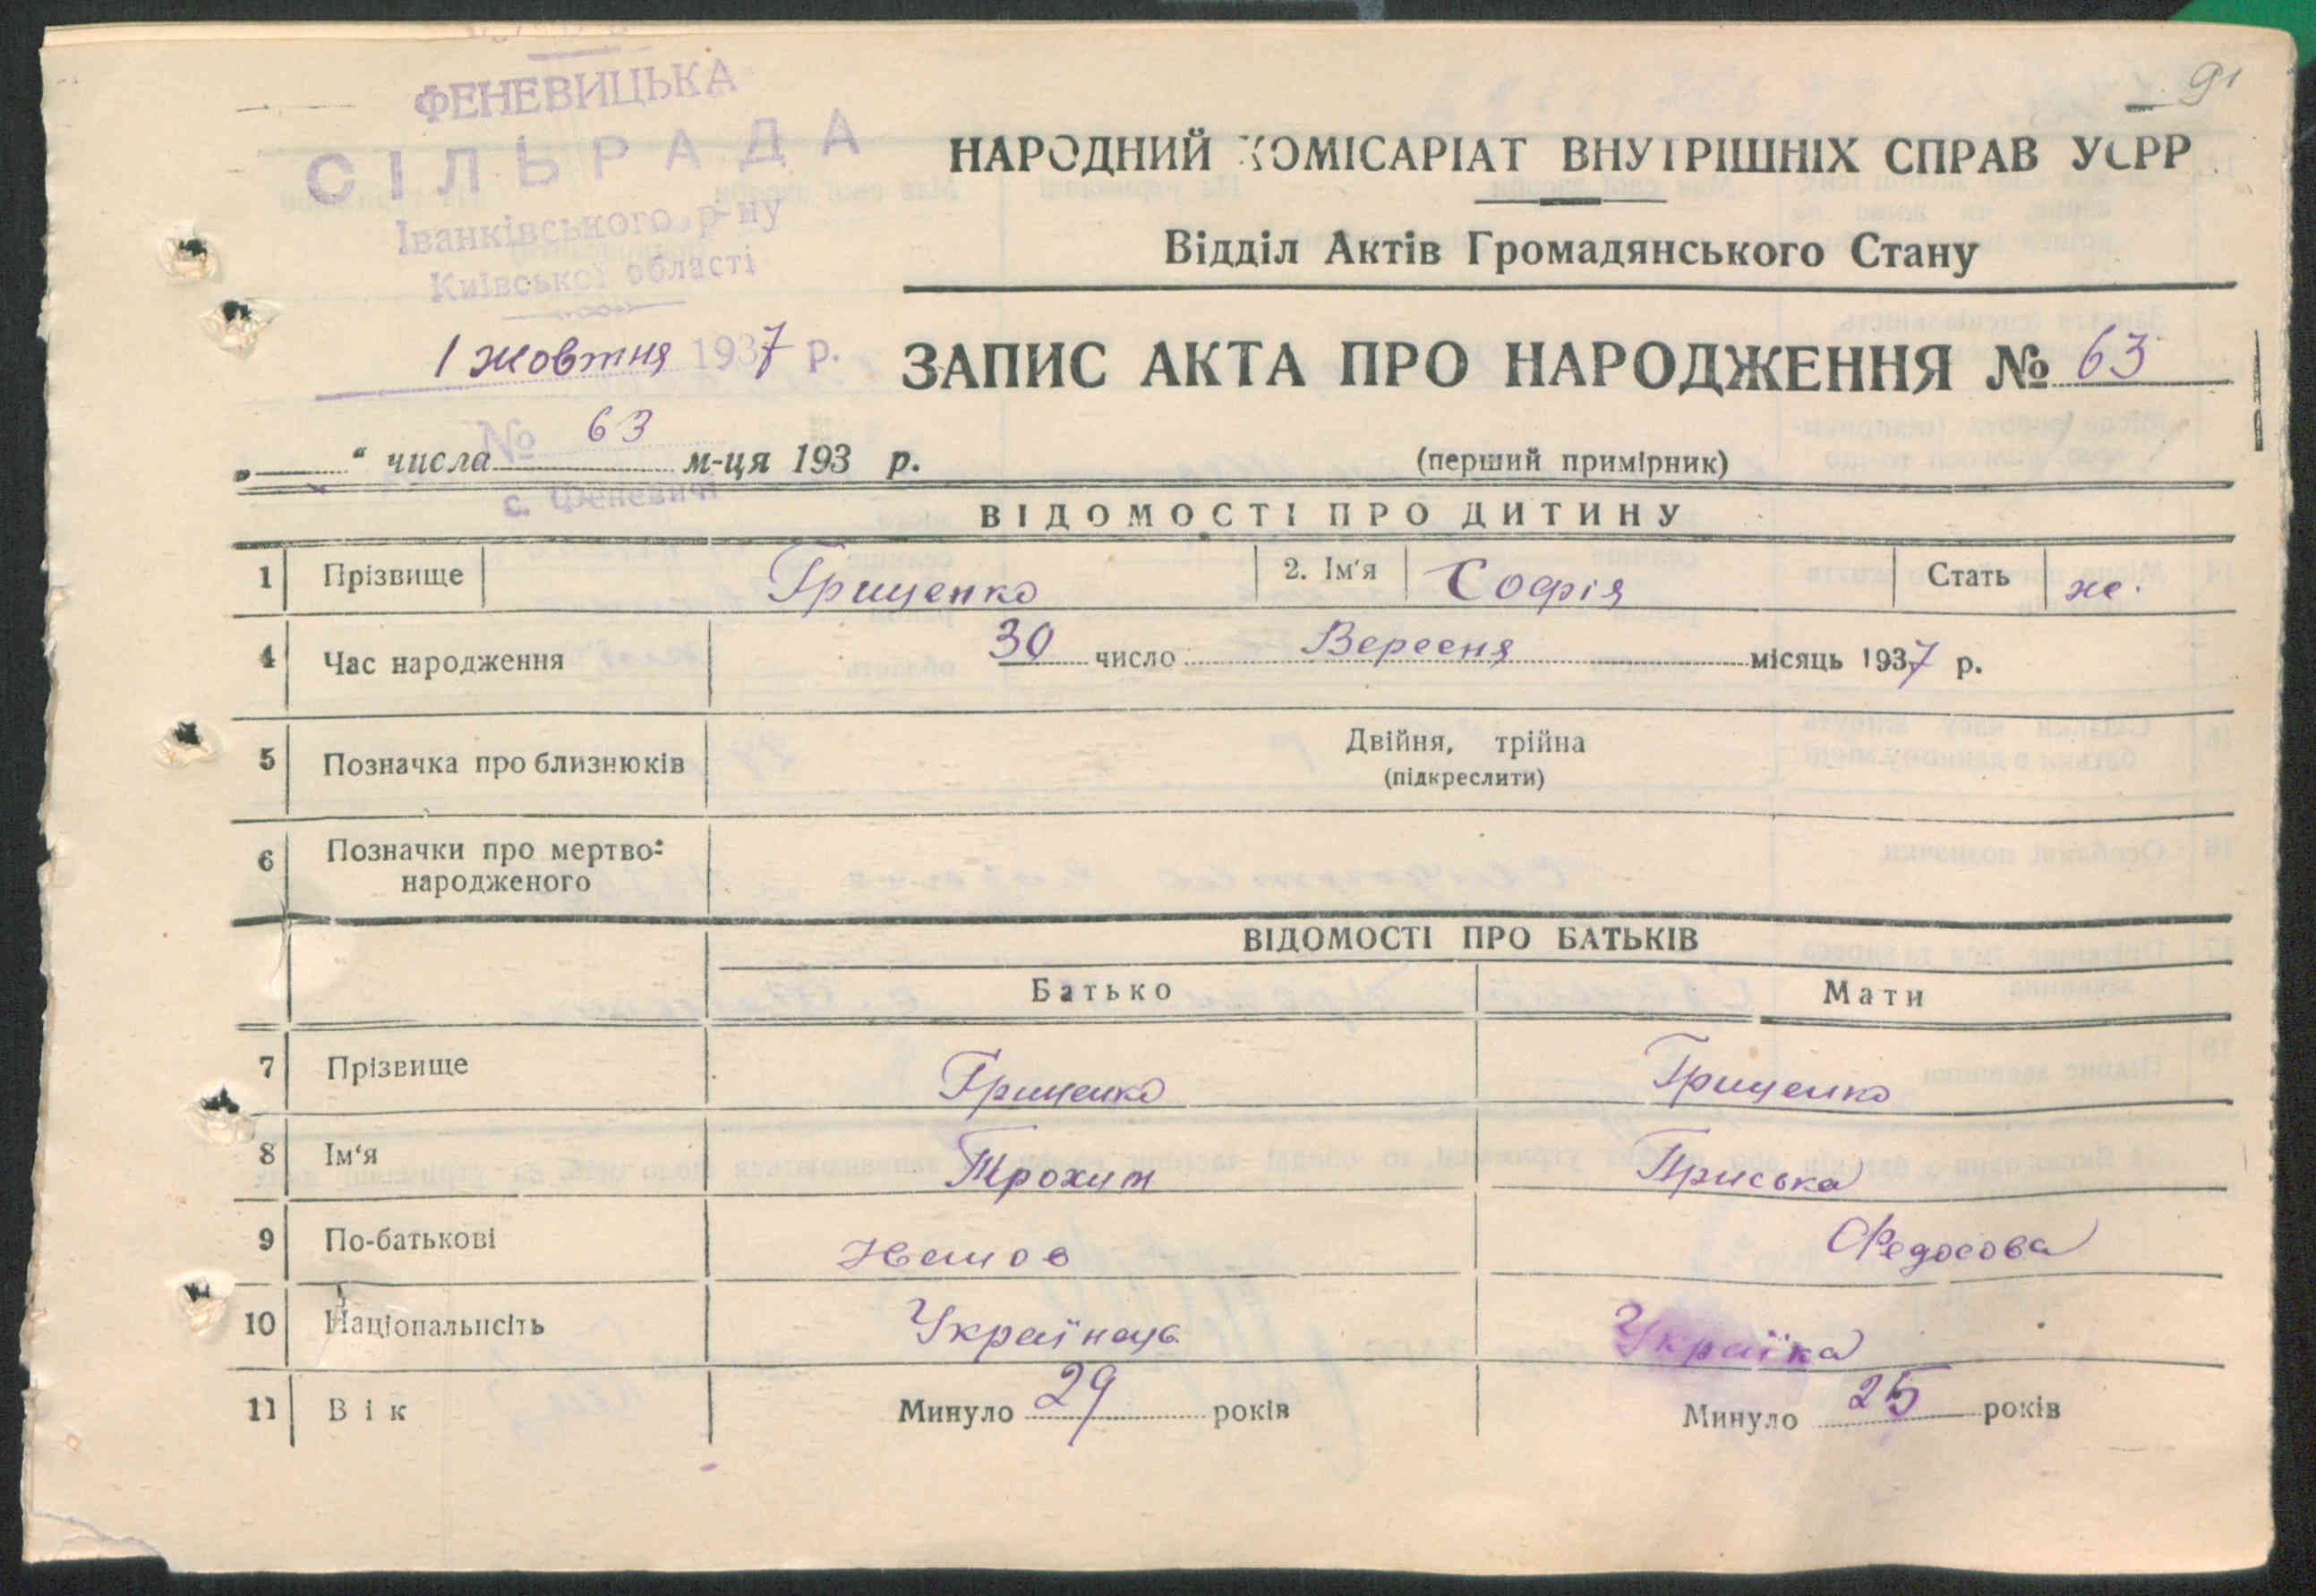 ФЕНЕВИЦЬКА
СІЛЬРАДА
Іванківського р-ну
Київської області
1 жовтня 1937 р.
№ 63
с. Феневичі
91
НАРОДНИЙ КОМІСАРІАТ ВНУТРІШНІХ СПРАВ УСРР
Відділ Актів Громадянського Стану
ЗАПИС АКТА ПРО НАРОДЖЕННЯ № 63
„ “ числа м-ця 193 р.
(перший примірник)
ВІДОМОСТІ ПРО ДИТИНУ
1 Прізвище Грищенко 2. Ім'я Софія Стать ж.
4 Час народження 30 число Вересня місяць 1937 р.
5 Позначка про близнюків Двійня, трійна
(підкреслити)
6 Позначки про мертво-
народженого
ВІДОМОСТІ ПРО БАТЬКІВ
Батько Мати
7 Прізвище Грищенко Грищенко
8 Ім'я Трохим Приська
9 По-батькові Федосова
10 Національність Українець Українка
11 Вік Минуло 29 років Минуло 25 років